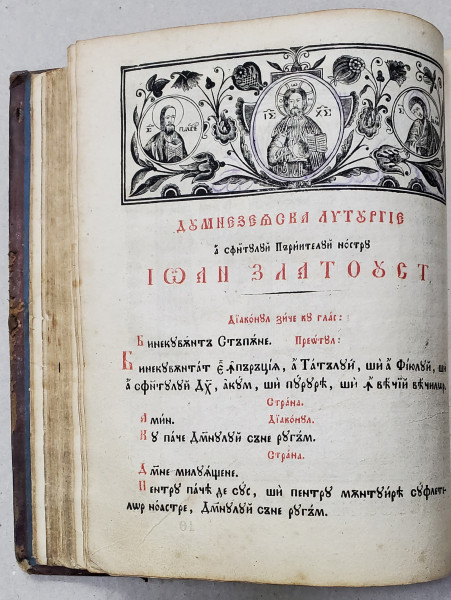 ІС ХС
ДꙋМНЕЗЕѦСКА ЛУТꙋРГІЕ
а҆ сфі́нтꙋлꙋй Пъри́нтелꙋй но́стрꙋ
ІѠАН ЗЛАТОꙋСТ
Дїа́конꙋл зи́че кꙋ гла́с:
Бинекꙋвѫ́нтъ Стъпѫ́не. Прео́тꙋл:
Бинекꙋвѫнтат є҆́ ꙟпъръці́ѧ, а҆ Та́тълꙋй, ши́ а Фїю́лꙋй, ши
а сфі́нтꙋлꙋй Дх҃, а҆кꙋм, ши́ пꙋ́рꙋрѣ, ши́ ꙟ вѣ́чїй вѣ́чилѡр.
Стра́на.
Ами́н. Дїа́конꙋл.
Кꙋ па́че Дм҃нꙋлꙋй съ́не рꙋгъ́м.
Стра́на.
Дм҃не милꙋѧ́щене.
Пентрꙋ па́чѣ де сꙋ́с, ши́ пентрꙋ мѫнтꙋи́рѣ сꙋ́флети-
лѡр ноа́стре, Дм҃нꙋлꙋй съ́не рꙋгъ́м.